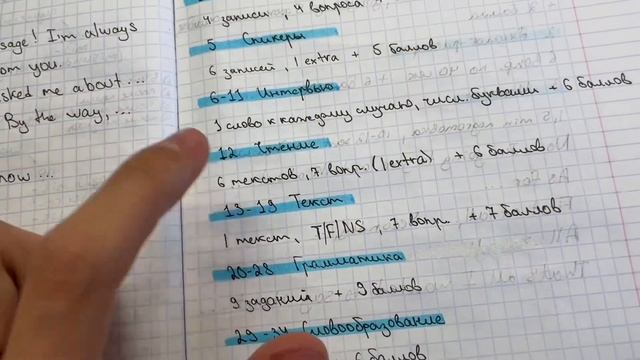 sage! I'm always
om you.
sked me about...
By the way, ...
now ...
4 записи, 4 вопроса
5 Спикеры
6 записей, 1 extra + 5 баллов
6-11 Интервью
1 слово к каждому случаю, числ. буквами + 6 баллов
12 Чтение
6 текстов, 7 вопр. (1 extra) + 6 баллов
13-19 Текст
1 текст, T/F/NS, 7 вопр. + 7 баллов
20-28 Грамматика
9 заданий + 9 баллов
29-34 Словообразование
6 баллов